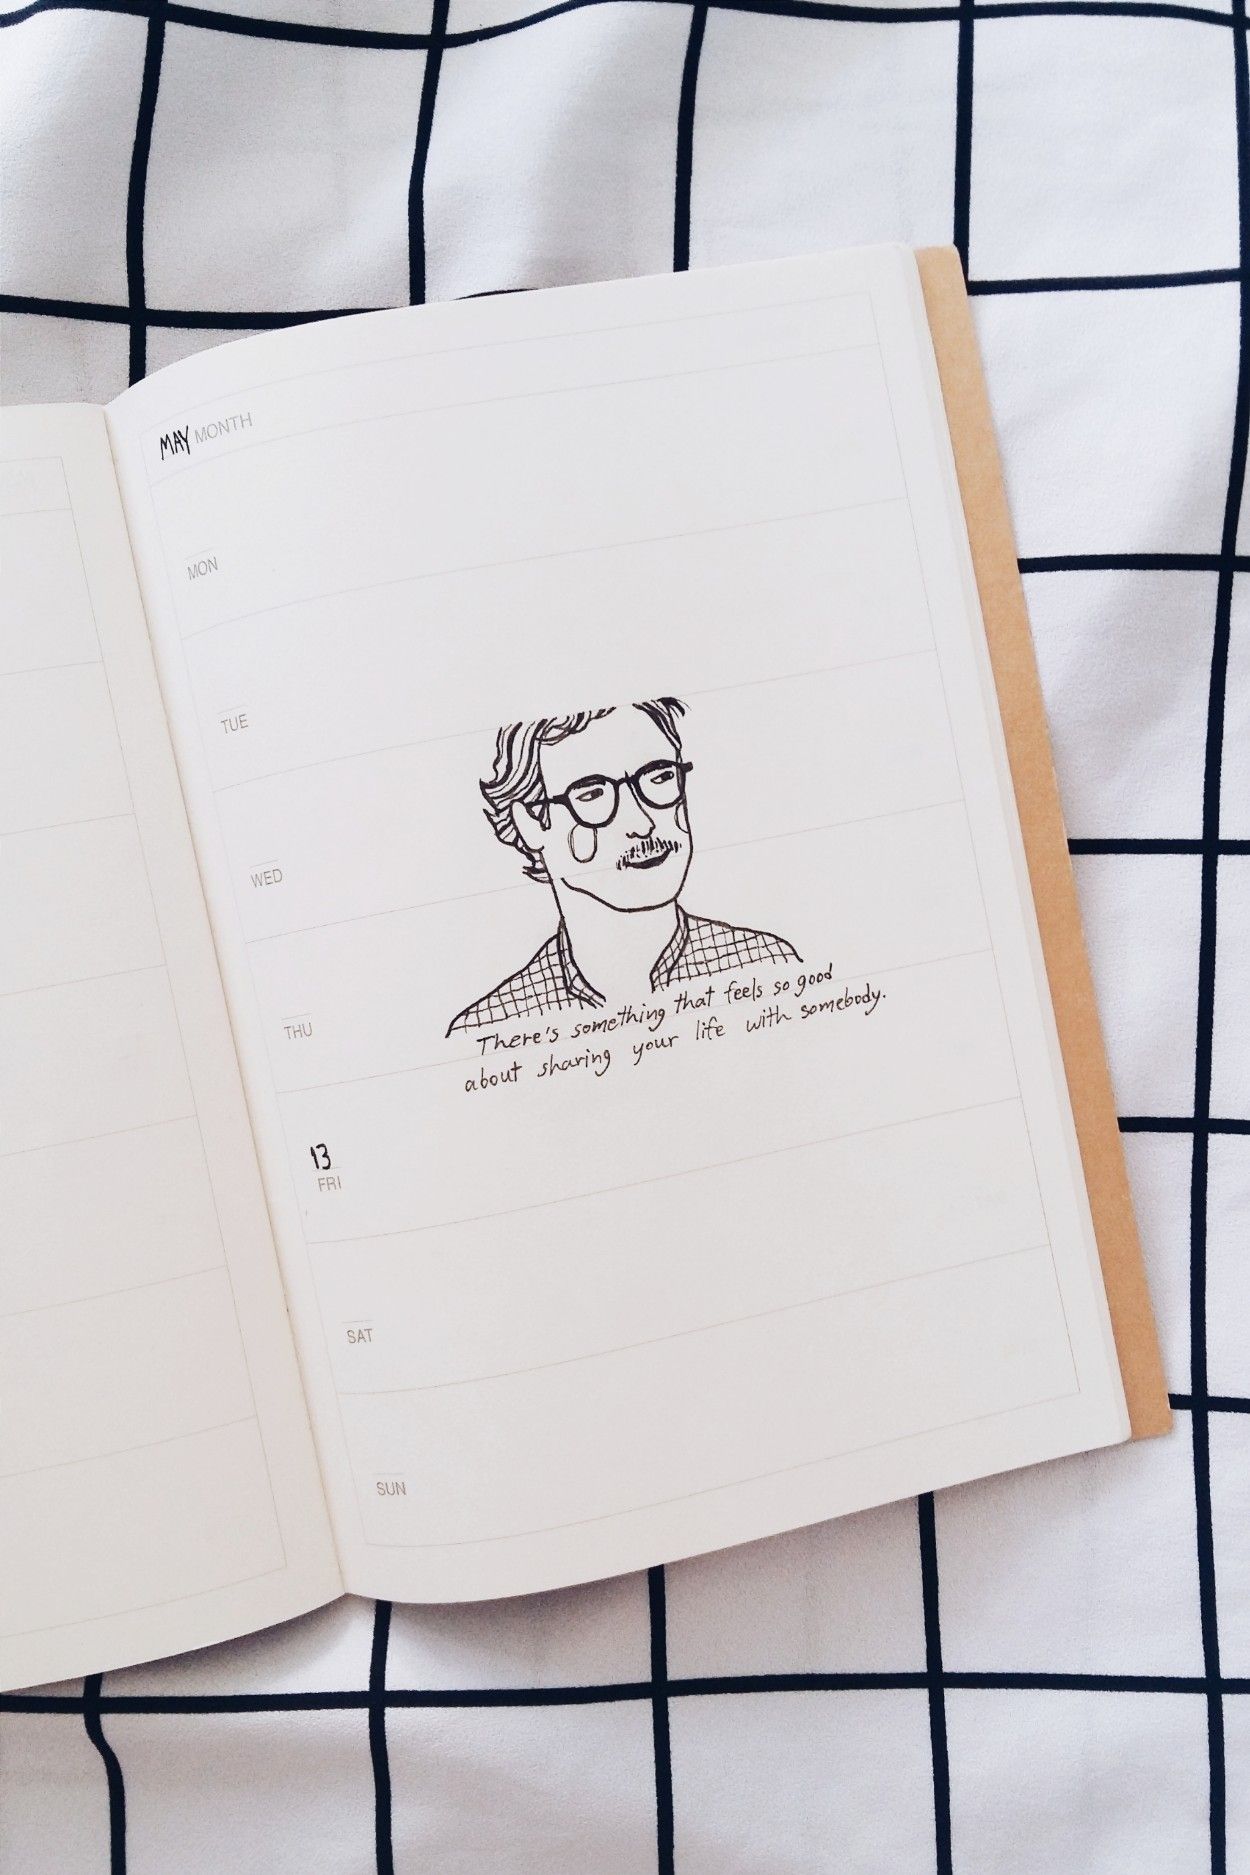 MAY MONTH
MON
TUE
WED
THU
There's something that feels so good
about sharing your life with somebody.
13
FRI
SAT
SUN